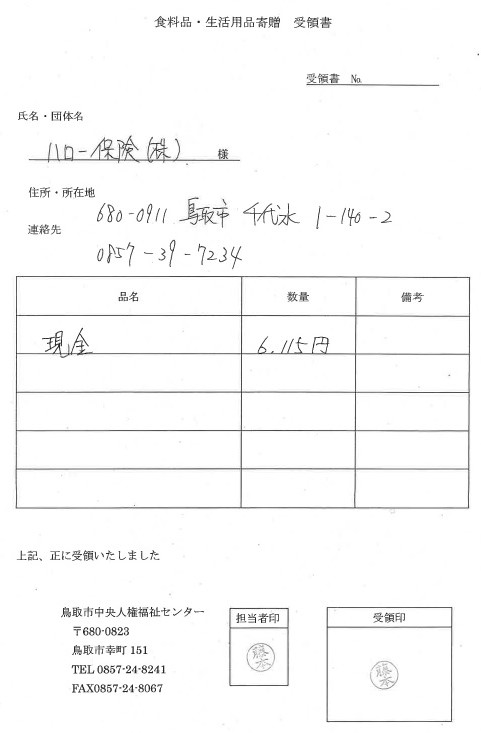 食料品・生活用品寄贈　受領書
受領書　No.
氏名・団体名
ハロー保険(株)　様
住所・所在地
680-0911 鳥取市 千代水 1-140-2
連絡先
0857-39-7234
品名　数量　備考
現金　6.115円
上記、正に受領いたしました
鳥取市中央人権福祉センター
〒680-0823
鳥取市幸町 151
TEL 0857-24-8241
FAX0857-24-8067
担当者印　受領印
藤本　藤本